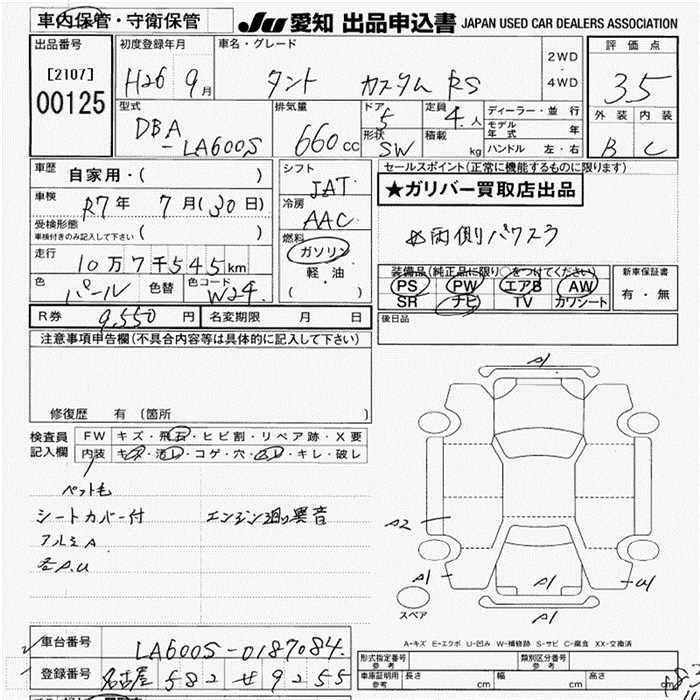 車内保管・守衛保管
JU 愛知 出品申込書 JAPAN USED CAR DEALERS ASSOCIATION
出品番号 初度登録年月 車名・グレード 評価点
[2107] 00125
H26 9月 タント カスタム RS 2WD ・ 4WD 3.5
型式 DBA-LA600S
排気量 660cc
ドア 5 形状 SW
定員 4人 積載 kg
ディーラー・並行
モデル年式 年
ハンドル 左・右
外装 内装
B C
車歴 自家用・( )
車検 R7年 7月(30日)
受検形態 ( )
車検付きのみ記入して下さい
走行 10万7千545km
色 パール 色替 色コード W24
シフト IAT
冷房 AAC
燃料 ガソリン
軽・油
( )
セールスポイント(正常に機能するものに限ります)
★ガリバー買取店出品
両側パワスラ
装備品(純正品に限り○をつけてください) 新車保証書
PS PW エアB AW 有・無
SR ナビ TV カワシート
R券 9,550円 名変期限 月 日
後日品
注意事項申告欄(不具合内容等は具体的に記入して下さい)
修復歴 有(箇所 )
検査員記入欄 FW キズ・飛石・ヒビ割・リペア跡・X要
内装 キズ・汚レ・コゲ・穴・スレ・キレ・破レ
ペット毛
シートカバー付 エンジン廻り異音
アルミA
各A.U
A1
A2
A1 A1 U1
A1
スペア
A-キズ E-エクボ U-凹み W-補修跡 S-サビ C-腐食 XX-交換済
車台番号 LA600S-0187084
登録番号 名古屋 582 せ 9255
形式指定番号 参考 類別区分番号 参考
車庫証明用 参考 長さ cm 幅 cm 高さ cm